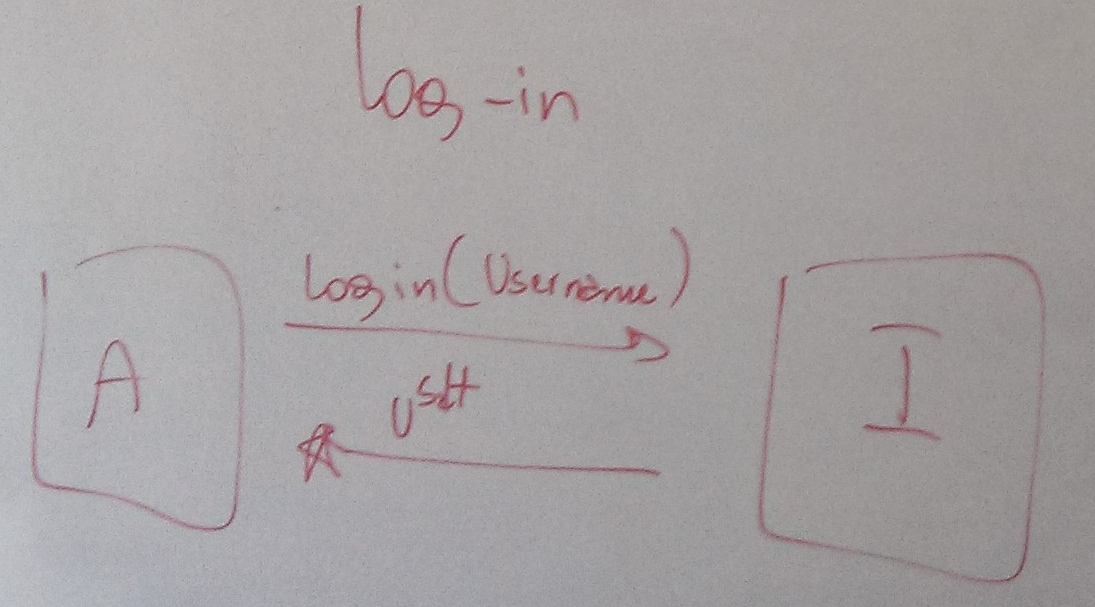 Log-in
Login(Username)
A
I